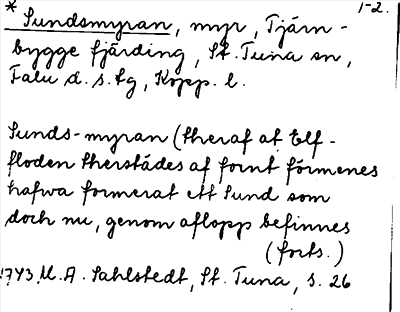 1-2.
* Sundsmyran, myr, Tjärn-
bygge fjärding, St. Tuna sn,
Falu d. s. lg, Kopp. l.
Sunds-myran (theraf at Elf-
floden therstädes af fornt förmenes
hafwa formerat ett Sund som
doch nu, genom aflopp befinnes
(forts.)
1743, M. A. Sahlstedt, St. Tuna, s. 26